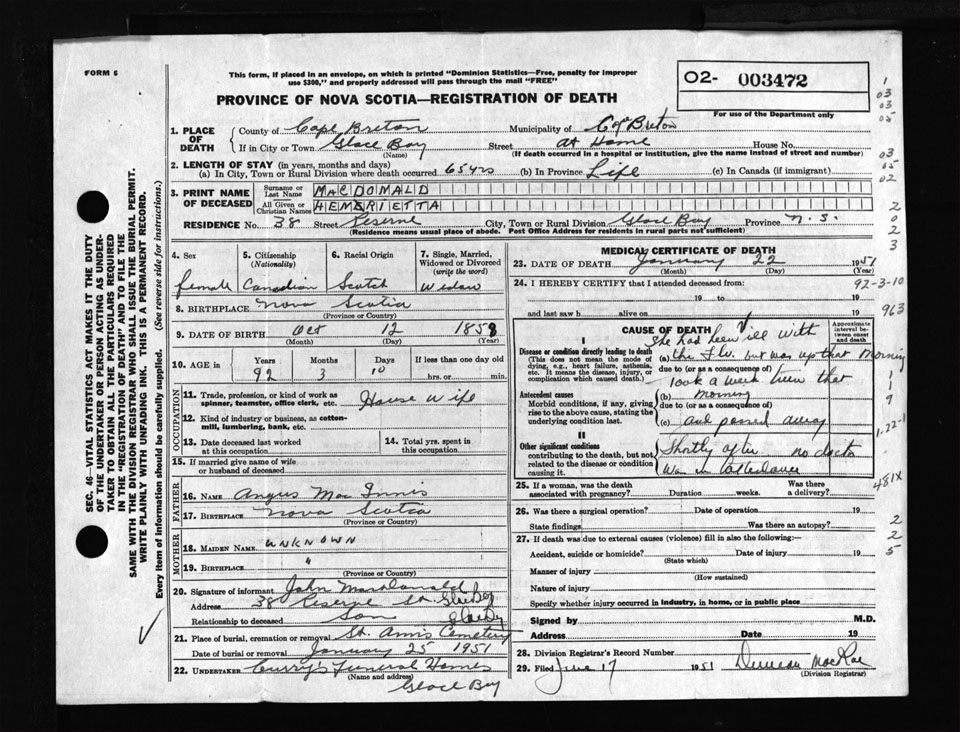 FORM 6
This form, if placed in an envelope, on which is printed "Dominion Statistics—Free, penalty for improper
use $300," and properly addressed will pass through the mail "FREE"
O2- 003472
For use of the Department only
PROVINCE OF NOVA SCOTIA—REGISTRATION OF DEATH
1. PLACE OF DEATH
County of Cape Breton Municipality of C of Breton
If in City or Town Glace Bay Street at Home House No.
(Name) (If death occurred in a hospital or institution, give the name instead of street and number)
2. LENGTH OF STAY (in years, months and days)
(a) In City, Town or Rural Division where death occurred 65 yrs (b) In Province Life (c) In Canada (if immigrant)
3. PRINT NAME OF DECEASED
Surname or Last Name MACDONALD
All Given or Christian Names HENERIETTA
RESIDENCE No. 38 Street Reserve City, Town or Rural Division Glace Bay Province N.S.
(Residence means usual place of abode. Post Office Address for residents in rural parts not sufficient)
4. Sex
female
5. Citizenship (Nationality)
Canadian
6. Racial Origin
Scotch
7. Single, Married, Widowed or Divorced (write the word)
Widow
8. BIRTHPLACE Nova Scotia
(Province or Country)
9. DATE OF BIRTH Oct 12 1858
(Month) (Day) (Year)
10. AGE Years Months Days If less than one day old
92 3 10 hrs. or min.
OCCUPATION
11. Trade, profession, or kind of work as spinner, teamster, office clerk, etc. House Wife
12. Kind of industry or business, as cotton-mill, lumbering, bank, etc.
13. Date deceased last worked at this occupation
14. Total yrs. spent in this occupation
15. If married give name of wife or husband of deceased
FATHER
16. Name Angus Mac Innis
17. BIRTHPLACE Nova Scotia
(Province or Country)
MOTHER
18. MAIDEN NAME UNKNOWN
19. BIRTHPLACE "
(Province or Country)
20. Signature of informant John MacDonald
Address 38 Reserve St. Glace Bay
Relationship to deceased Son Glace Bay
21. Place of burial, cremation or removal St. Anns Cemetery
Date of burial or removal January 25 1951
22. UNDERTAKER Curry's Funeral Homes
(Name and address)
Glace Bay
MEDICAL CERTIFICATE OF DEATH
23. DATE OF DEATH January 22 1951
(Month) (Day) (Year)
24. I HEREBY CERTIFY that I attended deceased from:
19 to 19
and last saw h alive on 19
CAUSE OF DEATH
Approximate interval between onset and death
I
Disease or condition directly leading to death
(This does not mean the mode of dying, e.g., heart failure, asthenia, etc. It means the disease, injury, or complication which caused death.)
She had been ill with
(a) the Flu. but was up that Morning
due to (or as a consequence of)
Took a weak turn that
Antecedent causes
Morbid conditions, if any, giving rise to the above cause, stating the underlying condition last.
(b) morning
due to (or as a consequence of)
(c) and passed away
II
Other significant conditions
contributing to the death, but not related to the disease or condition causing it.
Shortly after no doctor
was in attendance
25. If a woman, was the death associated with pregnancy? Duration weeks. Was there a delivery?
26. Was there a surgical operation? Date of operation 19
State findings Was there an autopsy?
27. If death was due to external causes (violence) fill in also the following:—
Accident, suicide or homicide? Date of injury 19
(State which)
Manner of injury
(How sustained)
Nature of injury
Specify whether injury occurred in industry, in home, or in public place
Signed by M.D.
Address Date 19
28. Division Registrar's Record Number
29. Filed June 17 1951 Duncan MacRae
(Division Registrar)
SEC. 46—VITAL STATISTICS ACT MAKES IT THE DUTY
OF THE UNDERTAKER OR PERSON ACTING AS UNDER-
TAKER TO OBTAIN ALL THE PARTICULARS REQUIRED
IN THE "REGISTRATION OF DEATH" AND TO FILE THE
SAME WITH THE DIVISION REGISTRAR WHO SHALL ISSUE THE BURIAL PERMIT.
WRITE PLAINLY WITH UNFADING INK. THIS IS A PERMANENT RECORD.
Every item of information should be carefully supplied. (See reverse side for instructions.)
1
03
03
05
03
05
02
2
0
2
3
92-3-10
963
1
1
9
1-22-1
481X
2
2
5